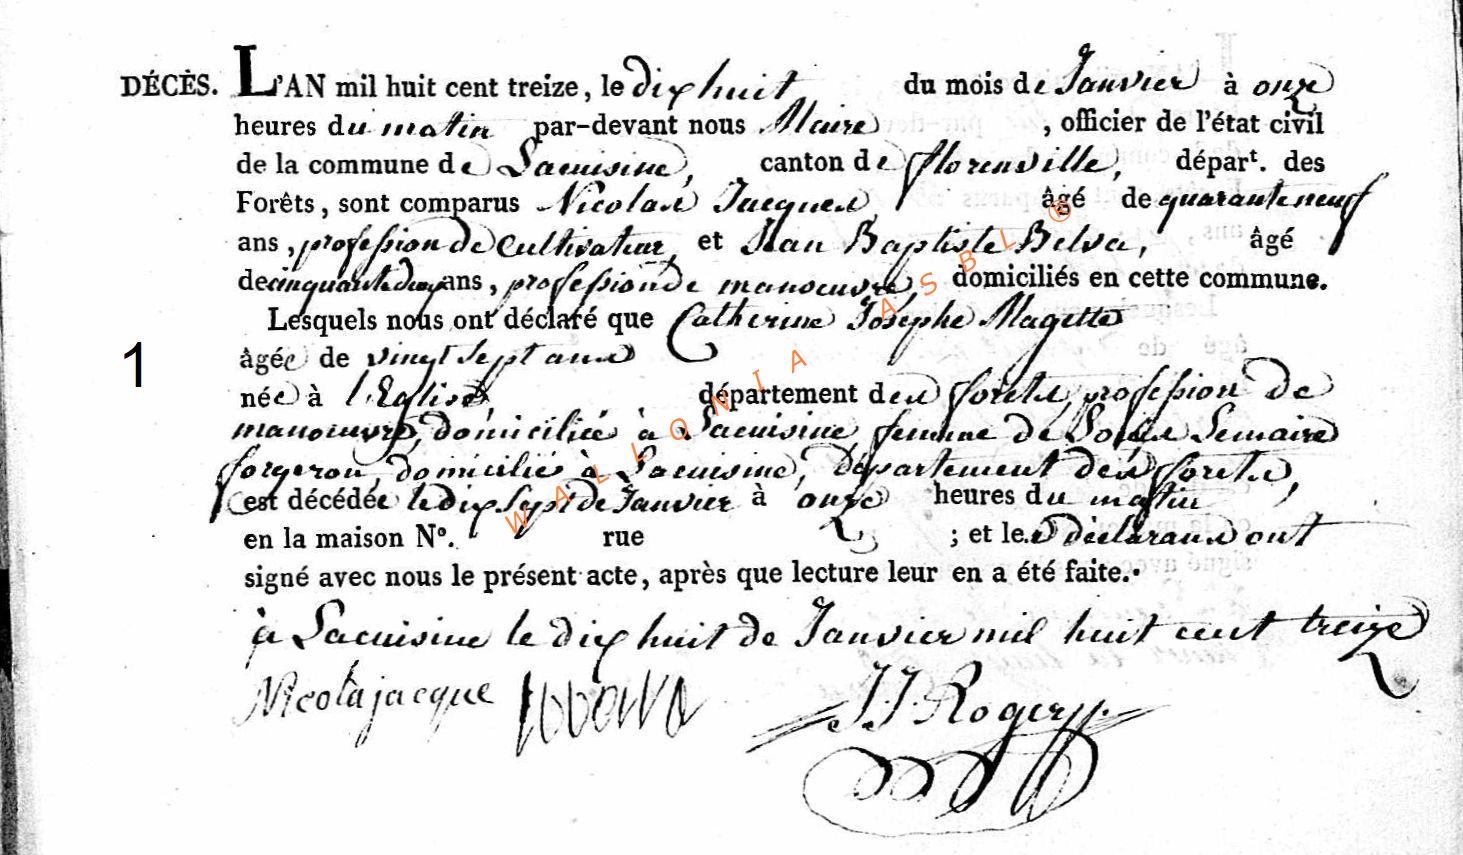 DÉCÈS. L'AN mil huit cent treize, le dix huit du mois de Janvier à onze
heures du matin par-devant nous Maire, officier de l'état civil
de la commune de Lacuisine, canton de florenville,épart. des
Forêts, sont comparus Nicolas Jacques, âgé de quarante neuf
ans, profession de Cultivateur, et Jean Baptiste Belva, âgé
de cinquante deux ans, profession de manoeuvre, domiciliés en cette commune.
Lesquels nous ont déclaré que Catherine Josephe Magette
1
âgée de vingt sept ans
née à l'Eglise département des forets, profession de
manoeuvre, domiciliée à Lacuisine, femme de Lemaire
forgeron, domicilié à Lacuisine, département des forets,
est décédée le dix Sept de Janvier à onze heures du matin
en la maison Nº. rue ; et les déclarans ont
signé avec nous le présent acte, après que lecture leur en a été faite.
à Lacuisine le dix huit de Janvier mil huit cent treize
Nicola jacque J. J. Rogery.
WALLONIA ASBL ®